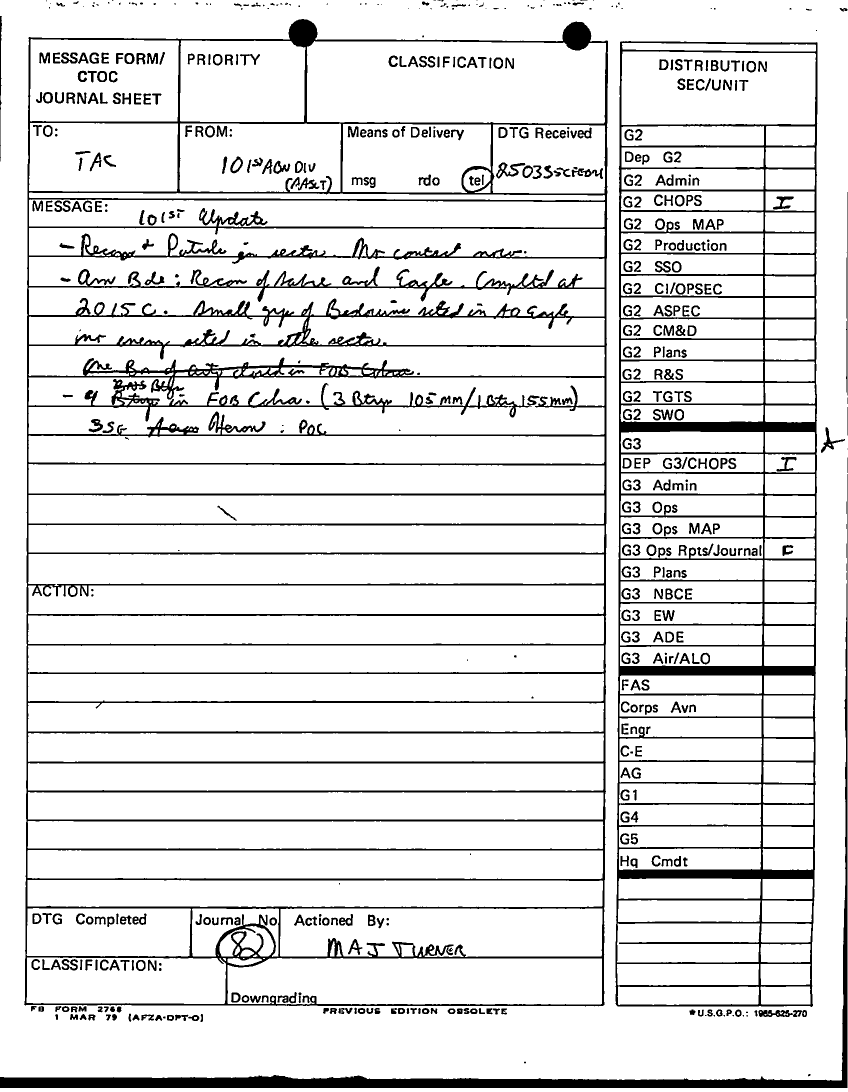 MESSAGE FORM/
CTOC
JOURNAL SHEET
PRIORITY
CLASSIFICATION
TO:
TAC
FROM:
101st ABN DIV
(AASLT)
Means of Delivery
msg rdo tel
DTG Received
MESSAGE:
101st Update
- Recon & Patrols in sector. No contact now.
- Avn Bde: Recon of Sabre and Eagle. Cmpltd at
2015 C. Small grp of Bedouins sited in AO Eagle,
no enemy sited in either sector.
One Bn of arty closed in FOB Cobra.
- 4 Btrys in FOB Cobra. (3 Btrys 105 mm/1 Btry 155mm)
Heron : POC
ACTION:
DTG Completed
Journal No
82
Actioned By:
MAJ TURNER
CLASSIFICATION:
Downgrading
FB FORM 2768
1 MAR 79 (AFZA-DPT-O)
PREVIOUS EDITION OBSOLETE
DISTRIBUTION
SEC/UNIT
G2
Dep G2
G2 Admin
G2 CHOPS I
G2 Ops MAP
G2 Production
G2 SSO
G2 CI/OPSEC
G2 ASPEC
G2 CM&D
G2 Plans
G2 R&S
G2 TGTS
G2 SWO
G3
DEP G3/CHOPS I
G3 Admin
G3 Ops
G3 Ops MAP
G3 Ops Rpts/Journal F
G3 Plans
G3 NBCE
G3 EW
G3 ADE
G3 Air/ALO
FAS
Corps Avn
Engr
C-E
AG
G1
G4
G5
Hq Cmdt
*U.S.G.P.O.: 1985-625-270